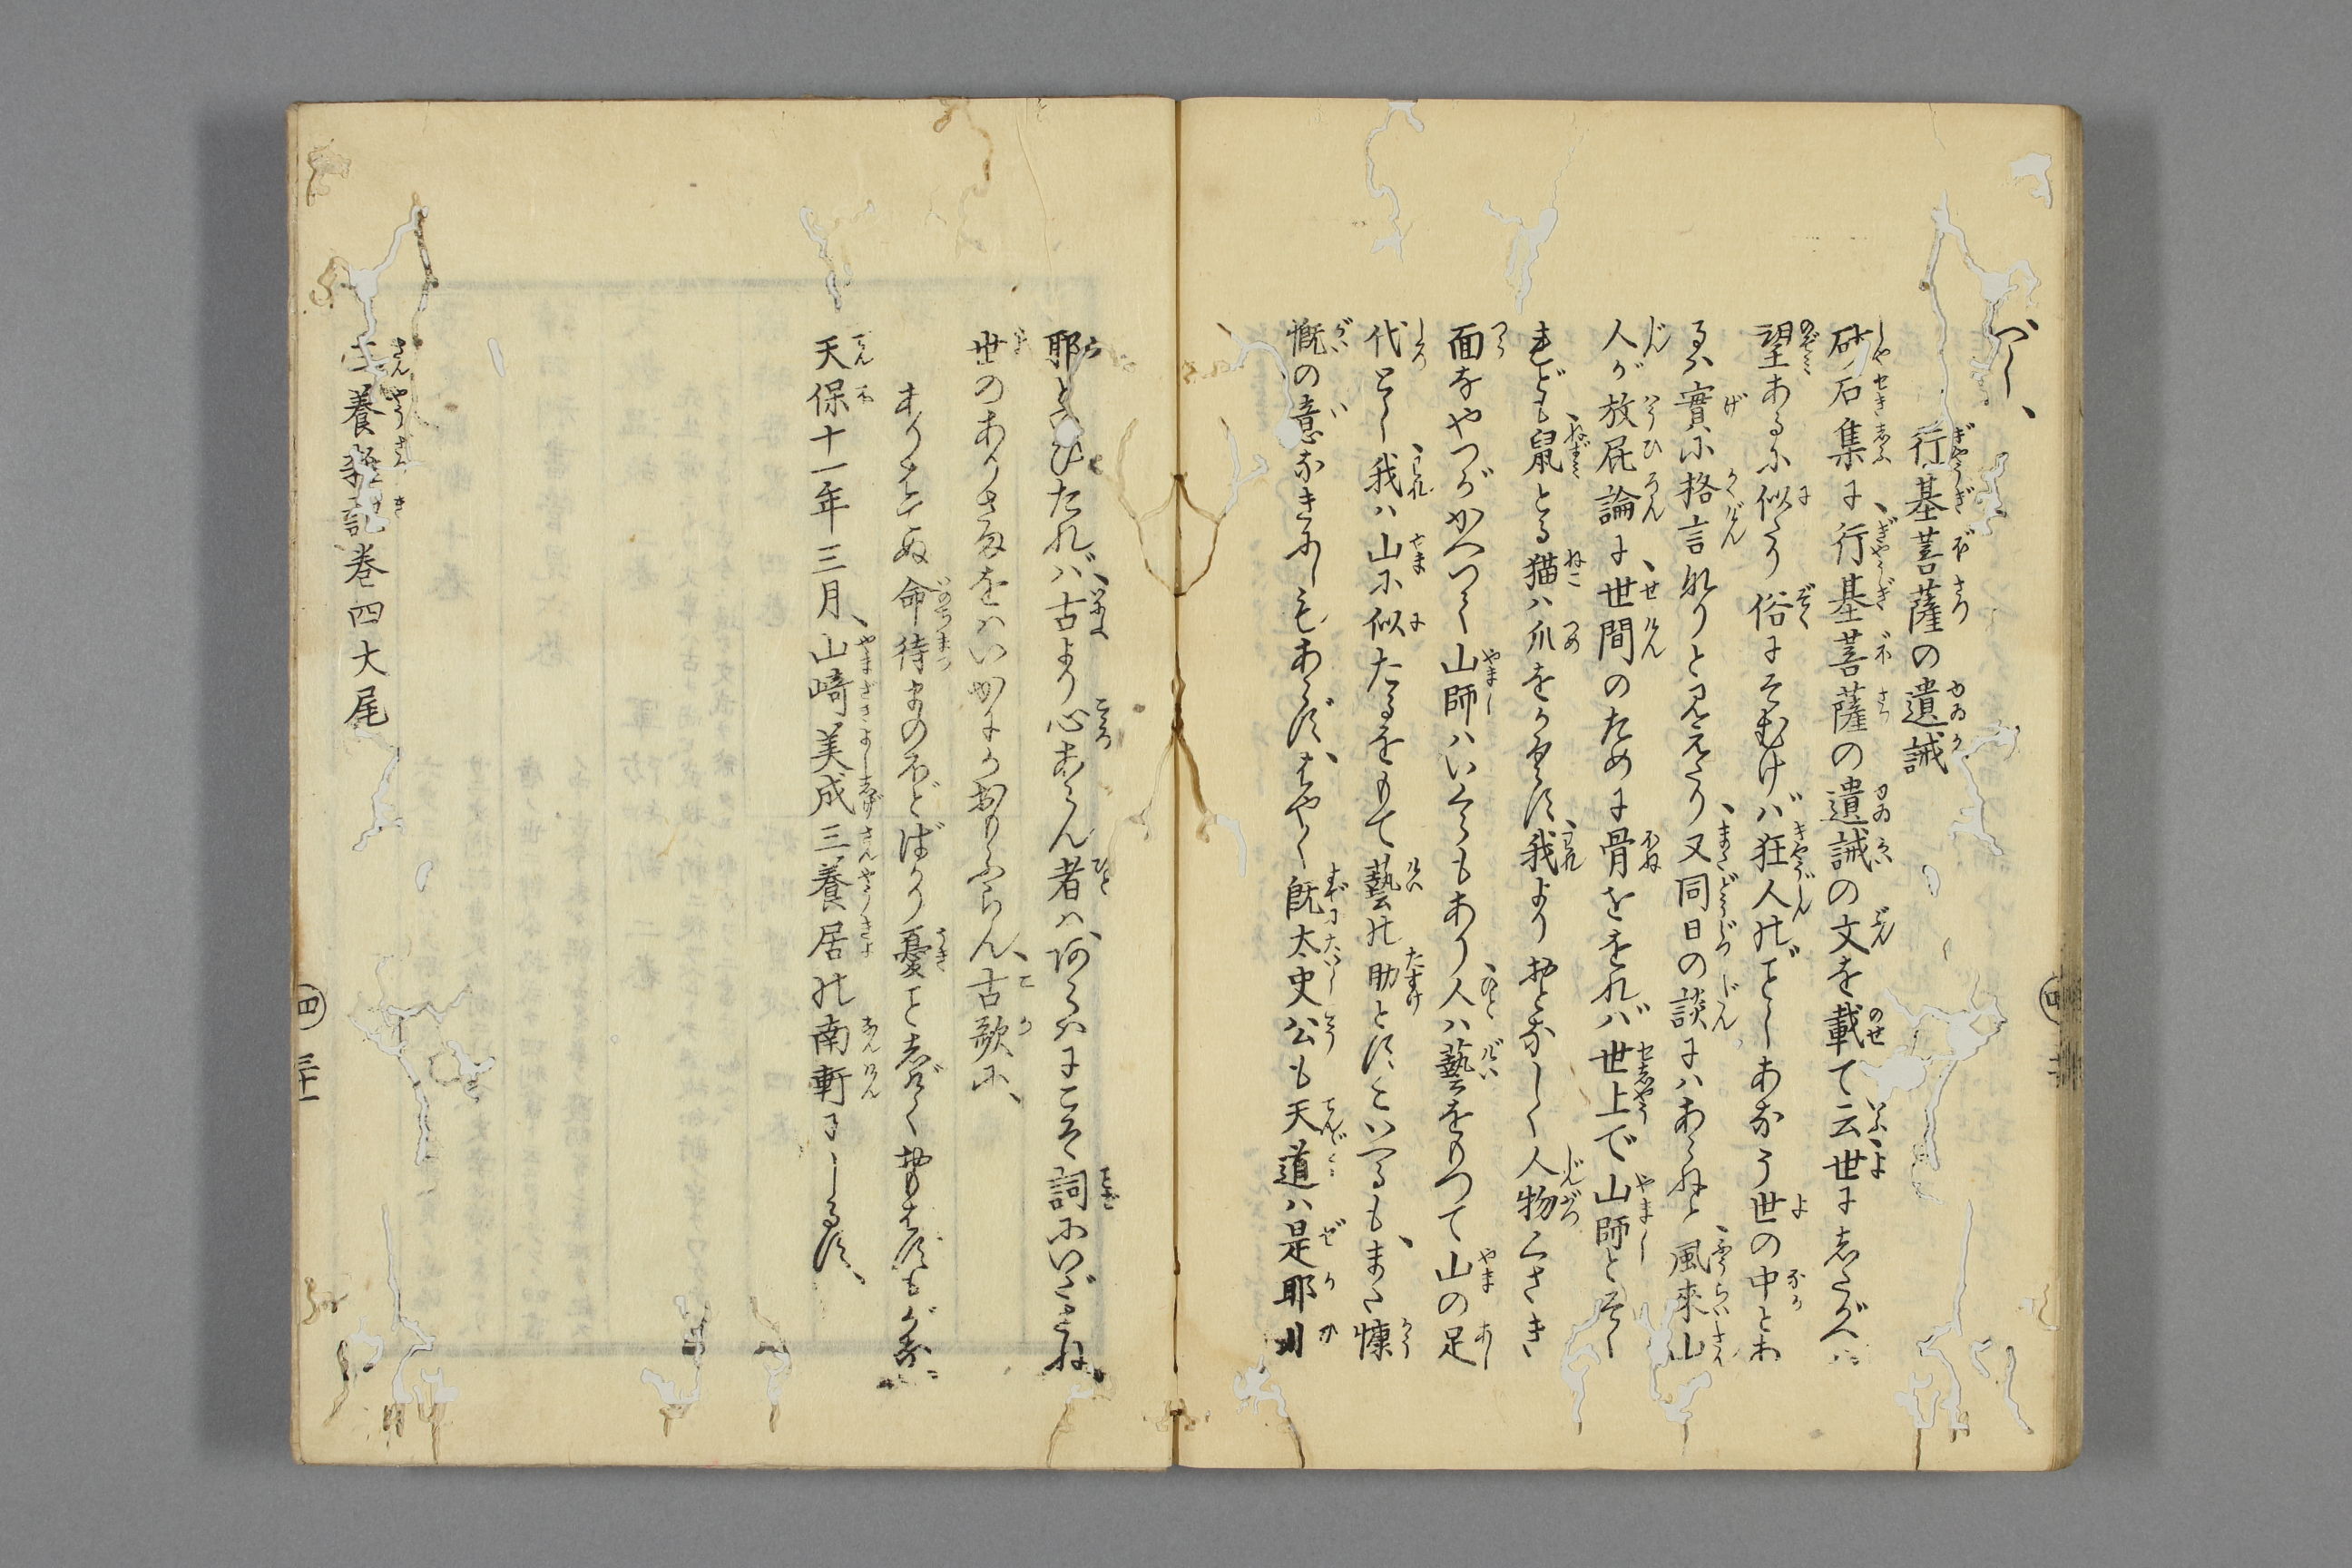 べし、
行基菩薩の遺誡
砂石集に、行基菩薩の遺誡の文を載て云、世にしたがへば
望あるに似たり俗にそむけば狂人のごとしあなう世の中とあ
るハ實に格言なりと見えたり、又同日の談にハあらねど、風來山
人が放屁論に、世間のために骨ををれバ世上で山師とそし
れども、鼠とる猫ハ爪をかくす、我よりおとなしく人物くさき
面なやつがかへつて山師ハいくらもあり、人ハ藝をもつて山の足
代とし、我ハ山に似たるをもて藝の助とす、といへるも、また慷
慨の意なきにしもあらず、はやく既太史公も天道ハ是耶非
耶といひたれバ、古より心あらん者ハ、
世のありさまをハいかにかおもふらん、古歌に、
ありはてぬ命待まのほどばかり憂ことしげくおもはずもがな
天保十一年三月、山崎美成三養居の南軒にしるす、
三養雜記巻四大尾
四 三十一